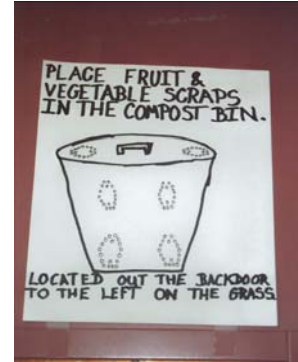 PLACE FRUIT &
VEGETABLE SCRAPS
IN THE COMPOST BIN.
LOCATED OUT THE BACKDOOR
TO THE LEFT ON THE GRASS.